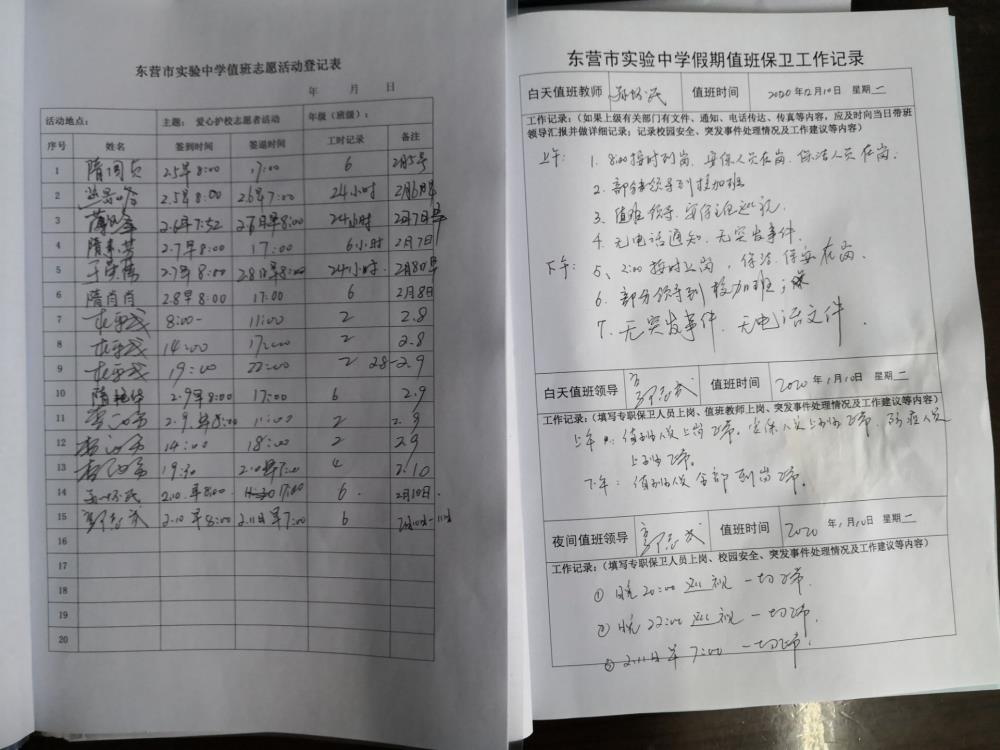 东营市实验中学值班志愿活动登记表
年 月 日
活动地点: 主题: 爱心护校志愿者活动 年级(班级):
序号 姓名 签到时间 签退时间 工时记录 备注
1 隋国贞 2.5早8:00 17:00 6 2月5号
2 2.5早8:00 2.6早7:00 24小时 2月6日早
3 2.6早7:52 2.7日早8:00 24小时 2月7日早
4 2.7早8:00 17:00 6小时 2月7日
5 2.7早8:00 2.8日早8:00 24小时 2月8日早
6 隋肖肖 2.8早8:00 17:00 6 2月8日
7 8:00- 11:00 2 2.8
8 14:00 17:00 2 2.8
9 19:00 22:00 2 2.8-2.9
10 2.9早8:00 17:00 6 2.9
11 2.9.早8:00 11:00 2 2.9
12 14:00 18:00 2 2.9
13 19:30 2.10早7:00 4 2.10
14 2.10.早8:00 17:00 6. 2月10日.
15 2.10早8:00 2.11日早7:00 6 2月10日-11日
16
17
18
19
20
东营市实验中学假期值班保卫工作记录
白天值班教师 值班时间 2020年12月10日 星期二
工作记录:(如果上级有关部门有文件、通知、电话传达、传真等内容,应及时向当日带班
领导汇报并做详细记录;记录校园安全、突发事件处理情况及工作建议等内容)
上午: 1. 8:00按时到岗. 安保人员在岗. 保洁人员在岗.
2. 部分领导到校加班
3. 值班领导. 安保主任巡视.
4. 无电话通知. 无突发事件.
下午: 5、2:00按时上岗, 保洁. 保安在岗.
6. 部分领导到校加班;
7. 无突发事件. 无电话文件.
白天值班领导 值班时间 2020年1月10日 星期二
工作记录:(填写专职保卫人员上岗、值班教师上岗、突发事件处理情况及工作建议等内容)
上午: 值班人员上岗正常. 安保人员上岗正常.
上岗正常.
下午: 值班人员全部到岗正常.
夜间值班领导 值班时间 2020年1月10日 星期二
工作记录:(填写专职保卫人员上岗、校园安全、突发事件处理情况及工作建议等内容)
① 晚20:00巡视 一切正常.
② 晚22:00巡视 一切正常.
③ 2.11日早7:00 一切正常.